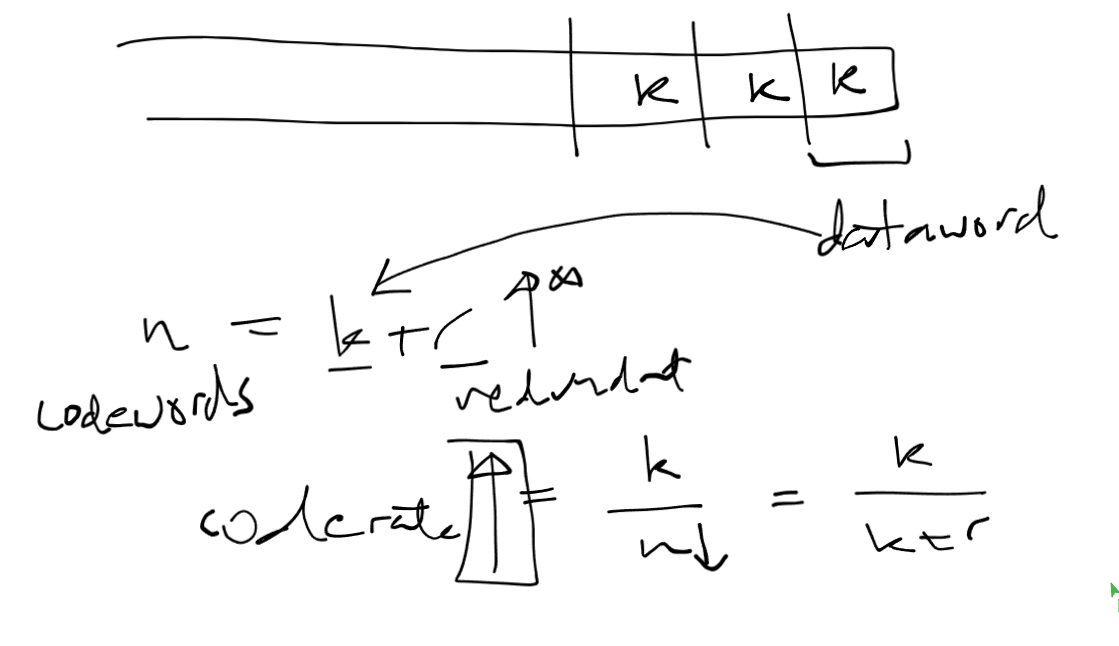 k k k
dataword
n = k + r ↑ ∞
codewords redundat
coderate ↑ = k / n↓ = k / k+r